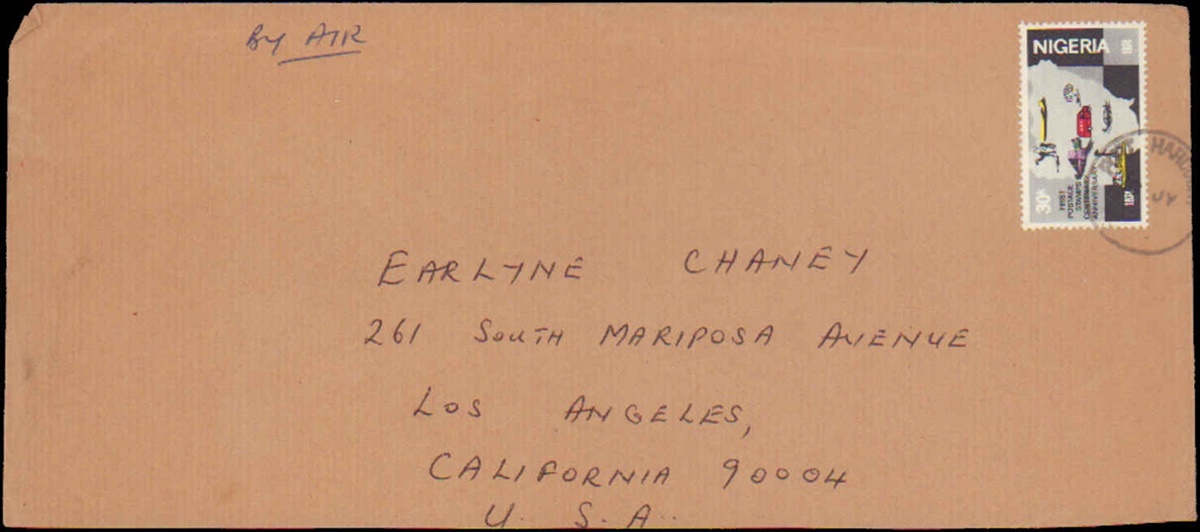 By AIR
NIGERIA
30k
FIRST
POSTAGE
STAMPS
CENTENARY
ANNIVERSARY
HARC
EARLYNE CHANEY
261 SOUTH MARIPOSA AVENUE
LOS ANGELES,
CALIFORNIA 90004
U. S. A.